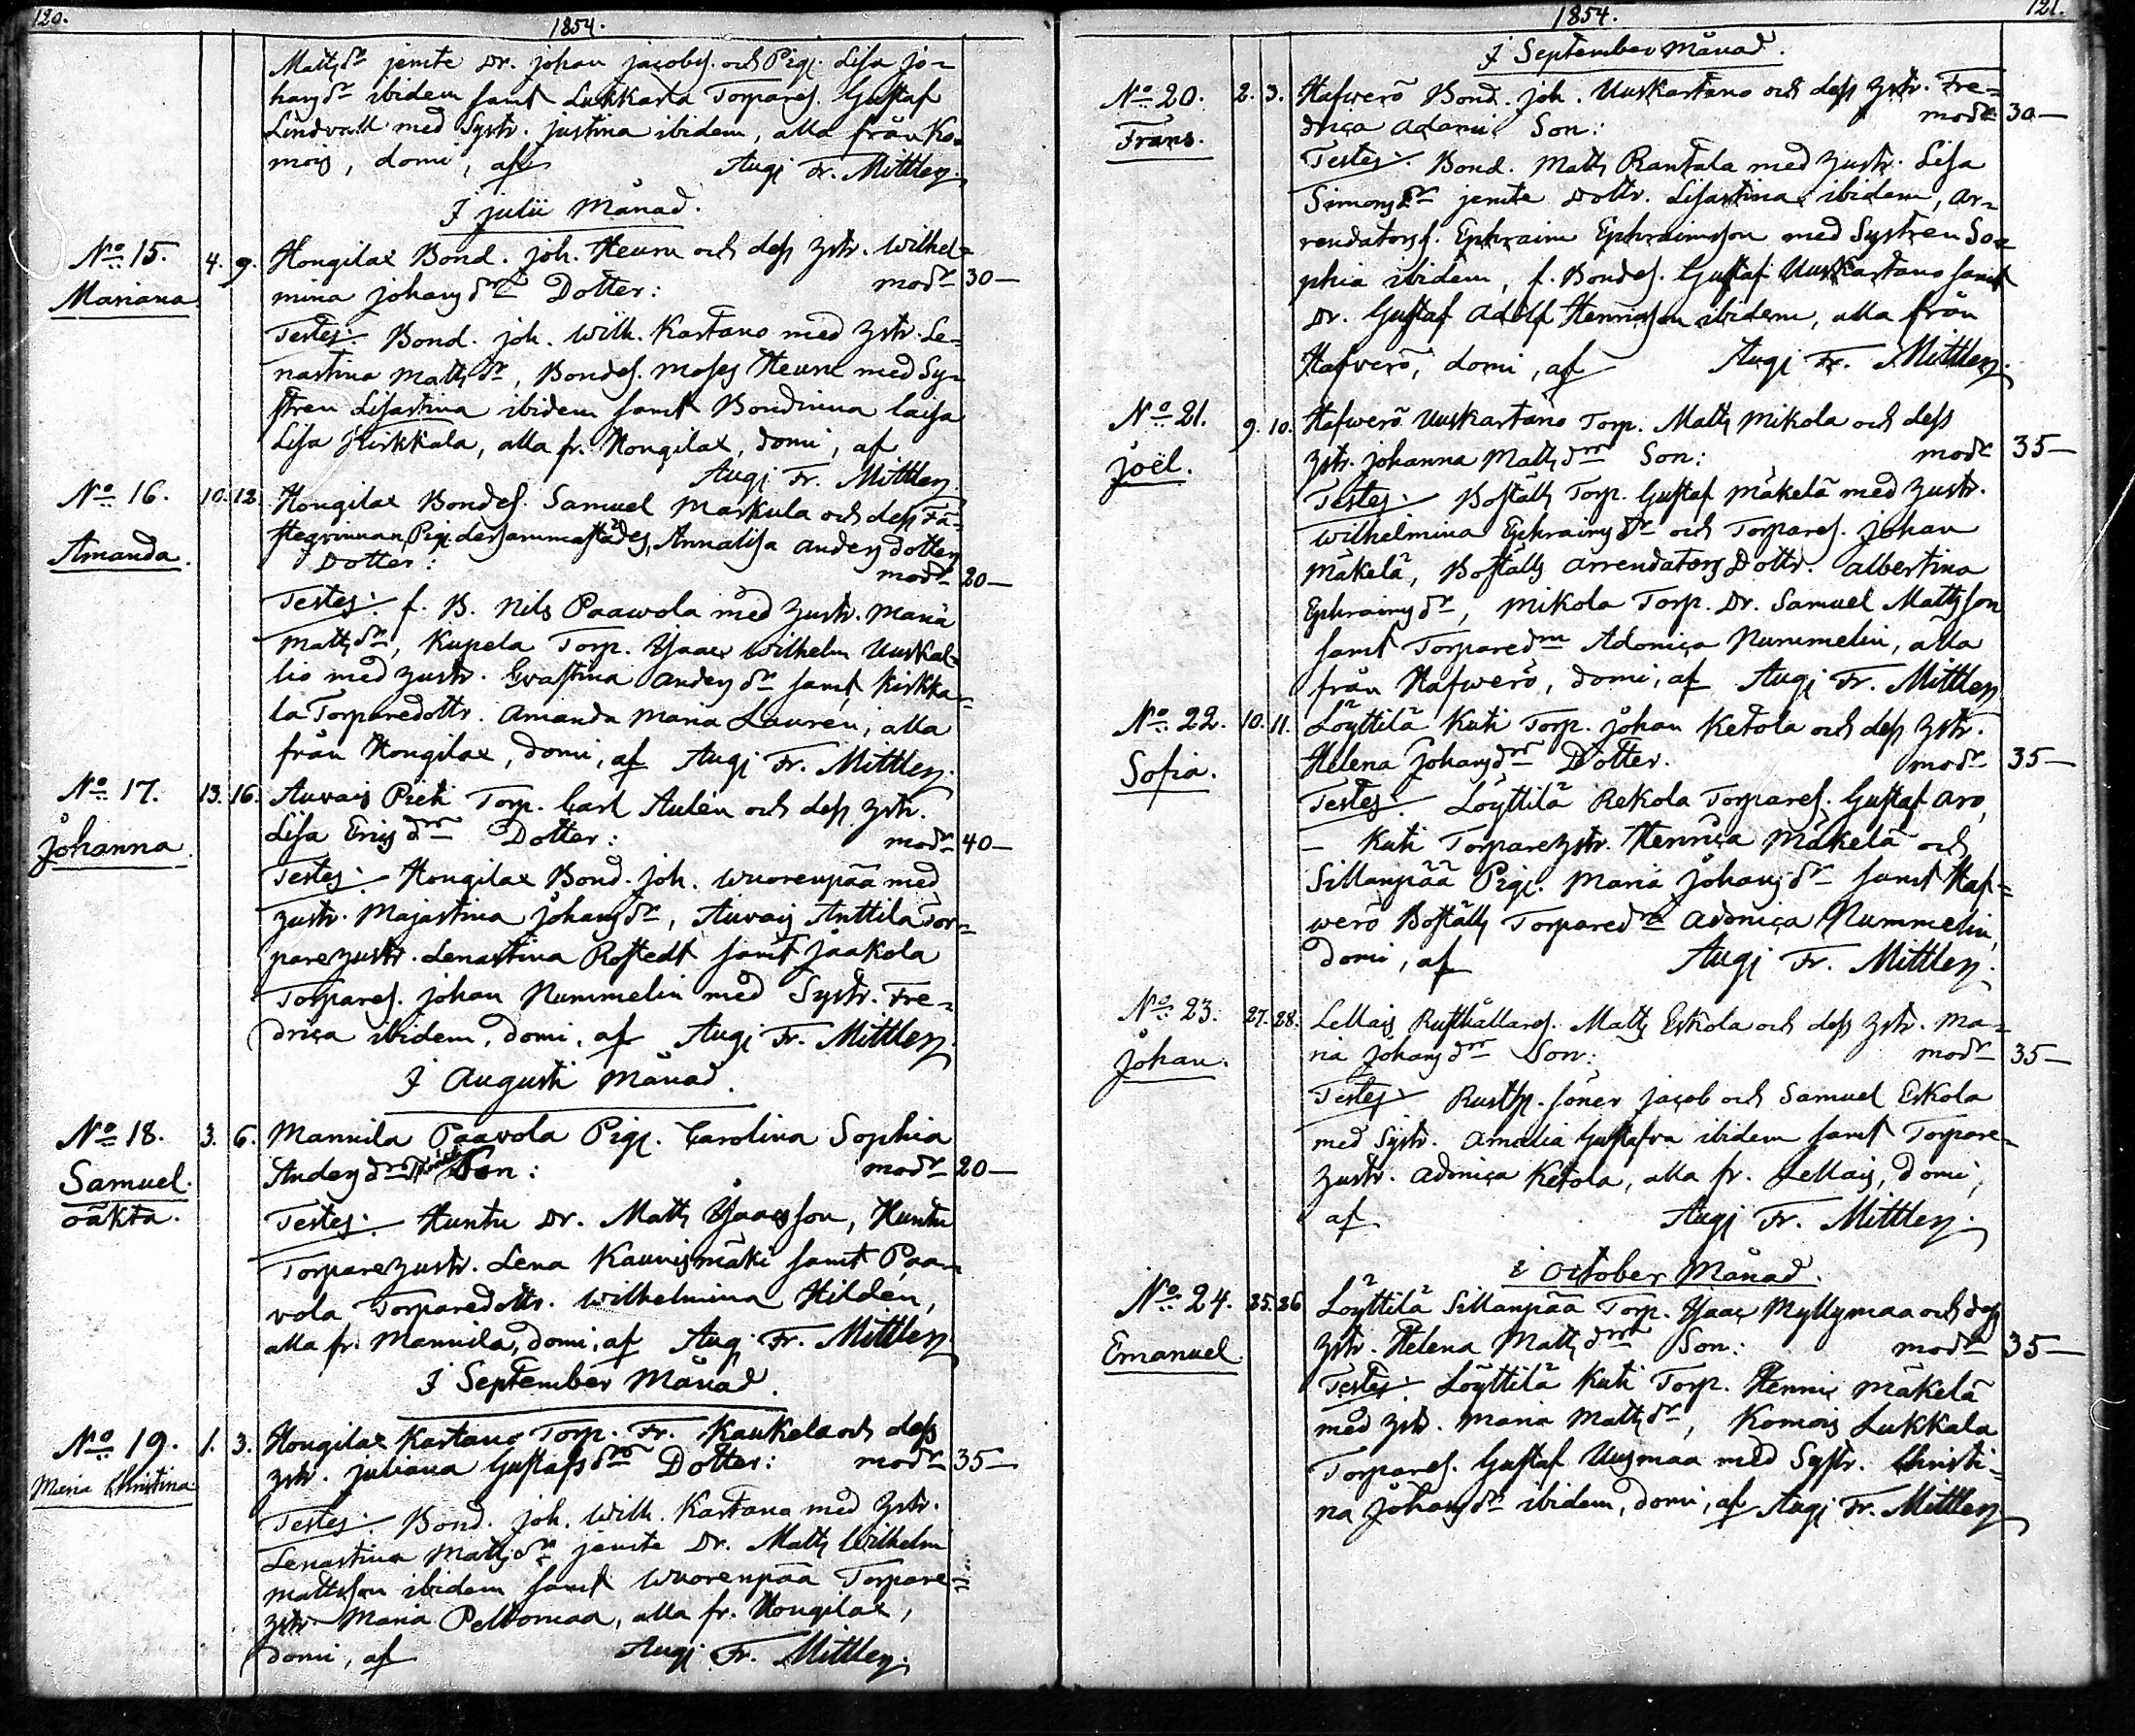 120.
1854.
Mattsdr jemte Dr. Johan Jacobss. och Pig. Lisa Jo=
hansdr ibidem samt Lukkarla Torpares. Gustaf
Lindvall med Systr. Justina ibidem, alla från Ko=
mois, domi, af Augj Fr. Mittler.
I Julii Månad.
No 15. 4. 9. Hongilax Bond. Joh. Heurn och dess Zstr. Wilhel=
Mariana mina Johansdrs Dotter: modr 30—
Testes: Bond. Joh. Wilh. Kartano med Zstr. Le=
nastina Mattsdr, Bondes. Moses Heurn med Sy=
stren Lisastina ibidem samt Bondinna Caisa
Lisa Kirkkala, alla fr. Hongilax, domi, af
Augj Fr. Mittler.
No 16. 10. 12. Hongilax Bondes. Samuel Markula och dess Fä=
Amanda. stegvinnan, Pig. dersammastädes, Annalisa Andersdotters
Dotter: modr 20—
Testes: f. B. Nils Paawola med Zustr. Maria
Mattsdr, Kupela Torp. Isaac Wilhelm Uuskal=
lio med Zustr. Evastina Andersdr samt Kirkka=
la Torparedottr. Amanda Maria Lauren, alla
från Hongilax, domi, af Augj Fr. Mittler.
No 17. 13. 16. Auvais Pieti Torp. Carl Aulén och dess Zstr.
Johanna. Lisa Ericsdrs Dotter: modr 40—
Testes: Hongilax Bond. Joh. Wuorenpää med
Zustr. Majastina Johansdr, Auvais Anttila Tor=
parezustr. Lenastina Rostedt samt Jaakola
Torpares. Johan Nummelin med Systr. Fre=
drica ibidem, domi, af Augj Fr. Mittler.
I Augusti Månad.
No 18. 3. 6. Mannila Paavola Pig. Carolina Sophia
Samuel. Andersdrs Son: modr 20—
oäkta. Testes: Huntu Dr. Matts Isaacsson, Huntu
Torparezustr. Lena Kaunismäki samt Paa=
vola Torparedottr. Wilhelmina Hildén,
alla fr. Mannila, domi, af Augj Fr. Mittler.
I September Månad.
No 19. 1. 3. Hongilax Kartano Torp. Fr. Kaukela och dess
Maria Christina Zstr. Juliana Gustafsdrs Dotter: modr 35—
Testes: Bond. Joh. Wilh. Kartano med Zstr.
Lenastina Mattsdr jemte Dr. Matts Wilhelm
Mattsson ibidem samt Wuorenpää Torpare=
zstr. Maria Peltomaa, alla fr. Hongilax,
domi, af Augj Fr. Mittler.
1854.
121.
I September Månad.
No 20. 2. 3. Hafwerö Bond. Joh. Uuskartano och dess Zstr. Fre=
Frans. drica Adami Son: modr 30—
Testes: Bond. Matts Rantala med Zustr. Lisa
Simonsdr jemte Dottr. Lisastina ibidem, Ar=
rendatorss. Ephraim Ephraimsson med Systren So=
phia ibidem, f. Bondes. Gustaf Uuskartano samt
Dr. Gustaf Adolf Henricsson ibidem, alla från
Hafverö, domi, af Augj Fr. Mittler.
No 21. 9. 10. Hafwerö Uuskartano Torp. Matts Mikola och dess
Joël. Zstr. Johanna Mattsdrs Son: modr 35—
Testes: Boställs Torp. Gustaf Mäkelä med Zustr.
Wilhelmina Ephraimsdr och Torpares. Johan
Mäkelä, Boställs Arrendators Dottr. Albertina
Ephraimsdr, Mikola Torp. Dr. Samuel Mattsson
samt Torparedrn Adonica Nummelin, alla
från Hafwerö, domi, af Augj Fr. Mittler.
No 22. 10. 11. Löyttilä Kuti Torp. Johan Ketola och dess Zstr.
Sofia. Helena Johansdrs Dotter. modr 35—
Testes: Löyttilä Rekola Torpares. Gustaf Aro,
— Kuti Torparezstr. Henrica Mäkelä och
Sillanpää Pig. Maria Johansdr samt Haf=
werö Boställs Torparedr Adonica Nummelin,
domi, af Augj Fr. Mittler.
No 23. 27. 28. Lellais Rusthållares. Matts Eskola och dess Zstr. Ma=
Johan. ria Johansdrs Son: modr 35—
Testes: Rusth. söner Jacob och Samuel Eskola
med Systr. Amalia Gustafva ibidem samt Torpare=
zustr. Adonica Ketola, alla fr. Lellais, domi,
af Augj Fr. Mittler.
i October Månad.
No 24. 25. 26. Löyttilä Sillanpää Torp. Isaac Myllymaa och dess
Emanuel. Zstr. Helena Mattsdrs Son: modr 35—
Testes: Löyttilä Kuti Torp. Henric Mäkelä
med Zstr. Maria Mattsdr, Komois Lukkala
Torpares. Gustaf Uusmaa med Systr. Christi=
na Johansdr ibidem, domi, af Augj Fr. Mittler